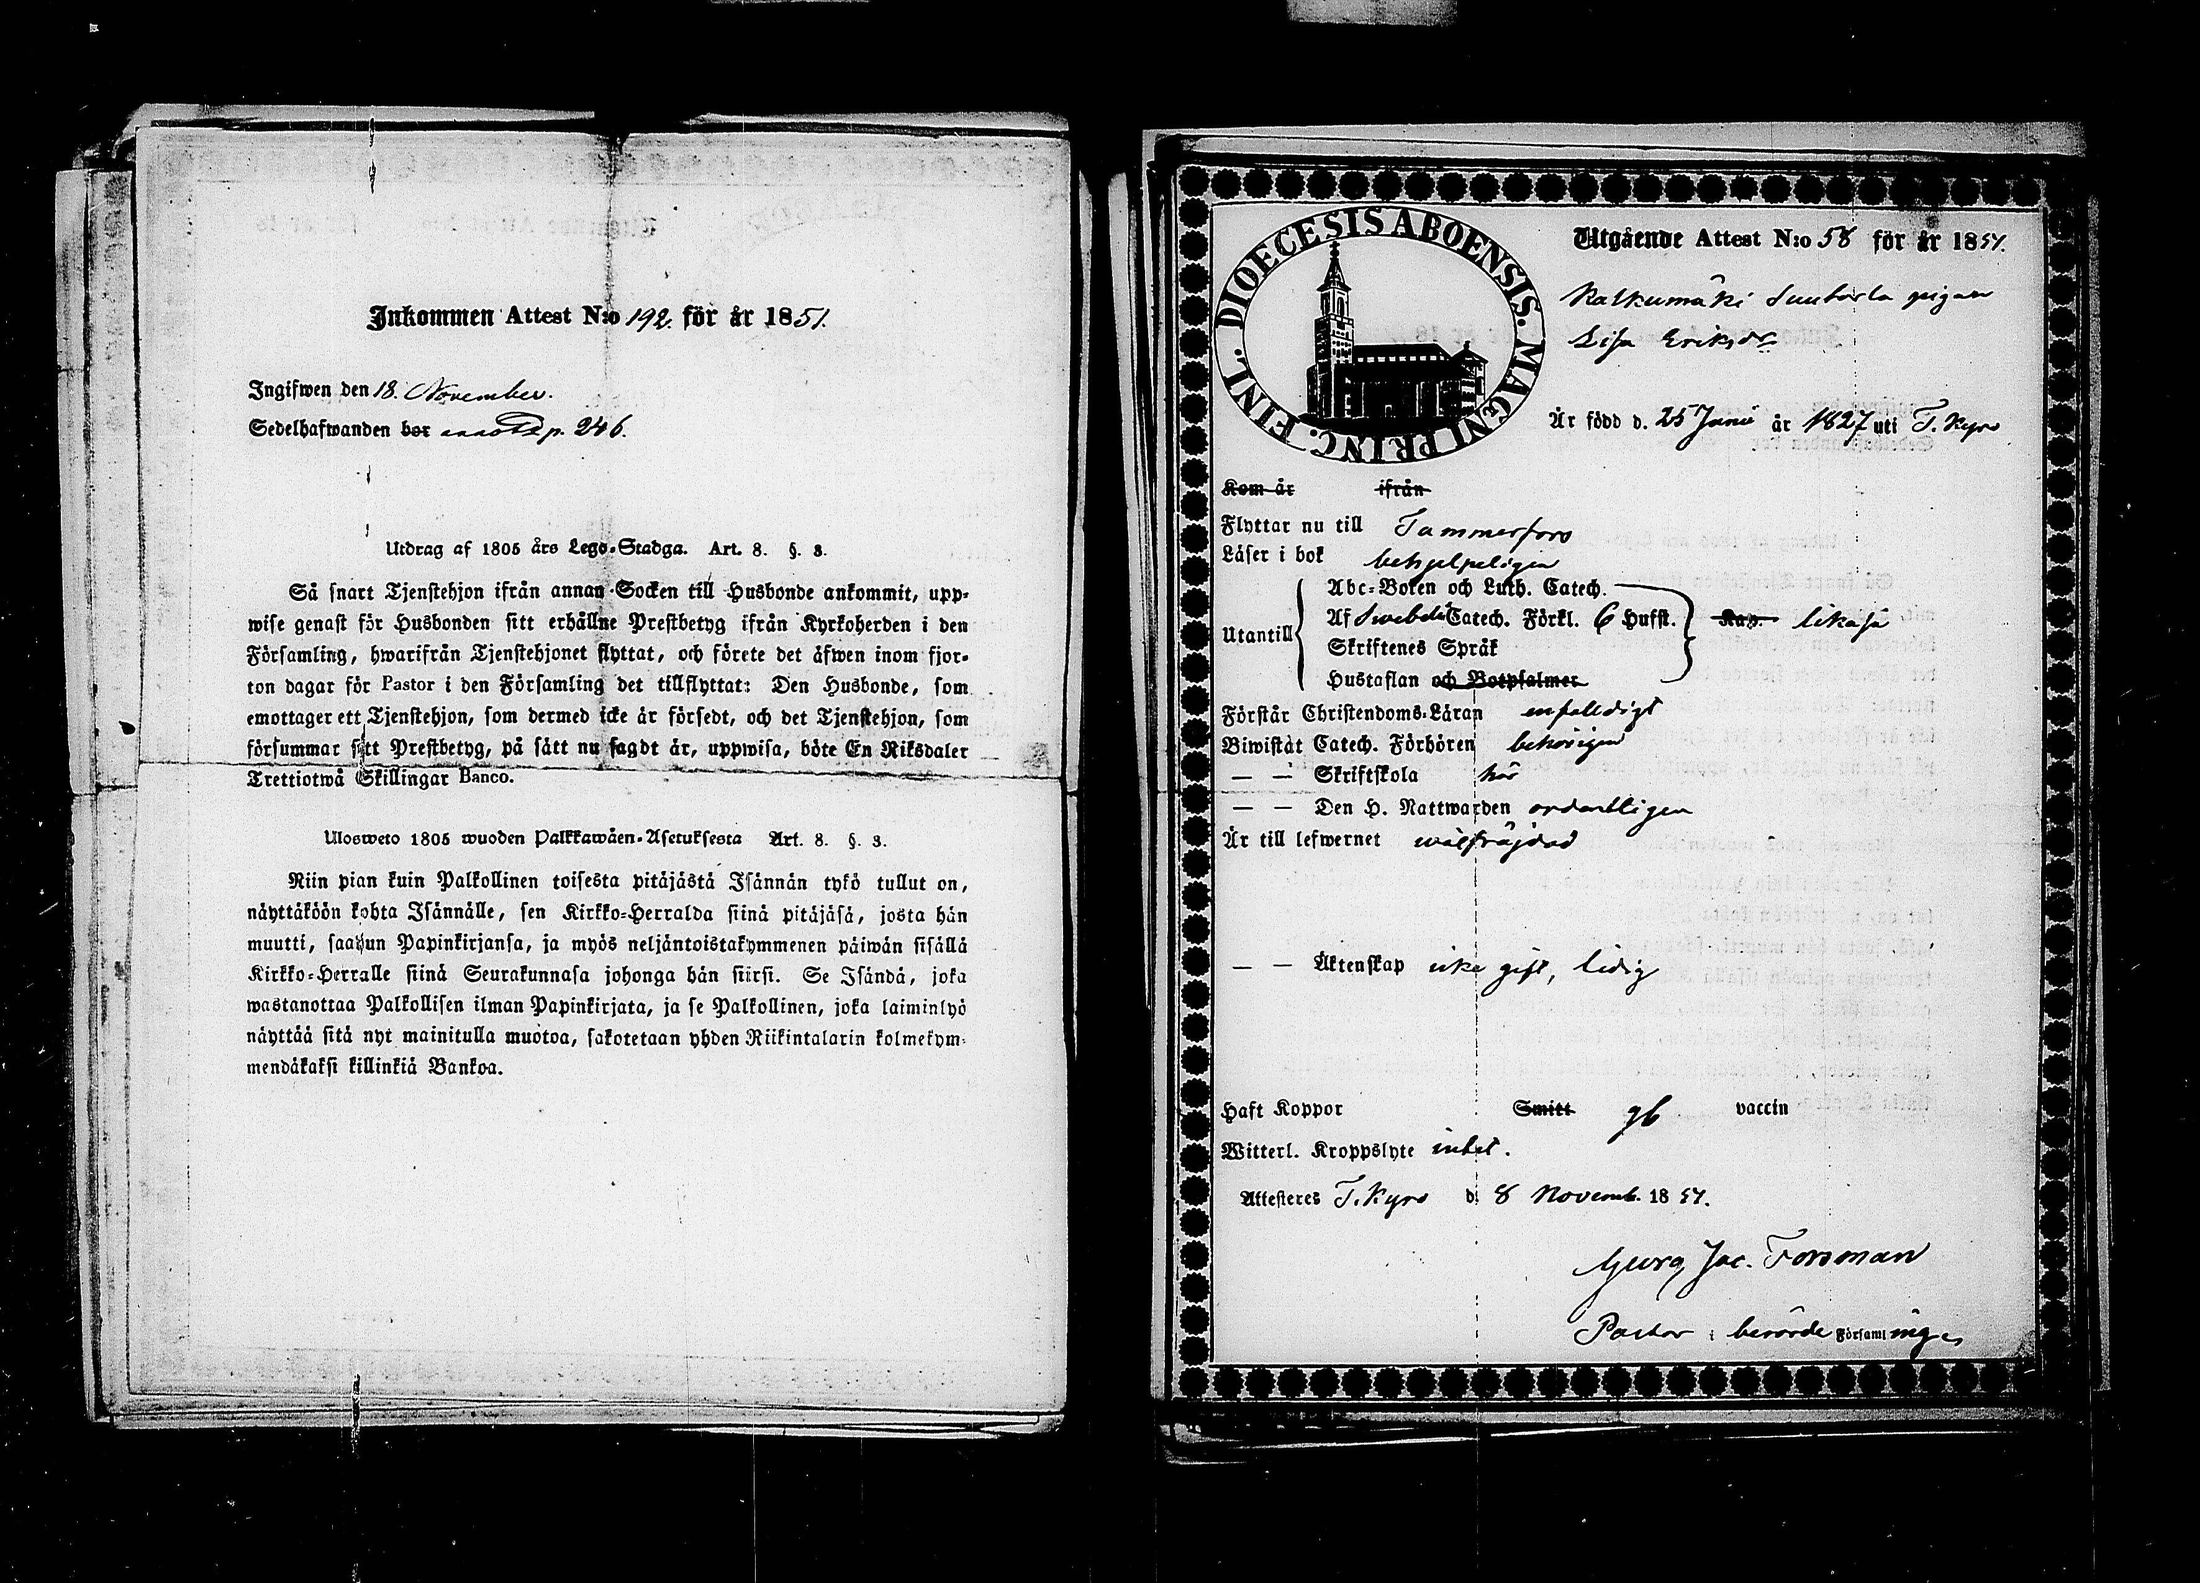 Inkommen Attest N:o 192. för år 1851.
Ingifwen den 18. November.
Sedelhafwanden bor annot. p. 246.
Utdrag af 1805 års Lego-Stadga. Art. 8. §. 3.
Så snart Tjenstehjon ifrån annan Socken till Husbonde ankommit, upp-
wise genast för Husbonden sitt erhållne Prestbetyg ifrån Kyrkoherden i den
Församling, hwarifrån Tjenstehjonet flyttat, och förete det äfwen inom fjor-
ton dagar för Pastor i den Församling det tillflyttat: Den Husbonde, som
emottager ett Tjenstehjon, som dermed icke är försedt, och det Tjenstehjon, som
försummar sitt Prestbetyg, på sätt nu sagdt är, uppwisa, böte En Riksdaler
Trettiotwå Skillingar Banco.
Ulosweto 1805 wuoden Palkkawäen-Asetuksesta Art. 8. §. 3.
Niin pian kuin Palkollinen toisesta pitäjästä Isännän tykö tullut on,
näyttäköön kohta Isännälle, sen Kirkko-Herralda siinä pitäjäsä, josta hän
muutti, saadun Papinkirjansa, ja myös neljäntoistakymmenen päiwän sisällä
Kirkko-Herralle siinä Seurakunnasa johonga hän siirsi. Se Isändä, joka
wastanottaa Palkollisen ilman Papinkirjata, ja se Palkollinen, joka laiminlyö
näyttää sitä nyt mainitulla muotoa, sakotetaan yhden Riikintalarin kolmekym-
mendäkaksi killinkiä Bankoa.
DIOECESIS ABOENSIS. MAGNI PRINC. FINL.
Utgående Attest N:o 58 för år 1851.
Kalkumäki Suutarla pigan
Lisa Eriksdr
Är född d. 25 Junii år 1827 uti T. Kyro
Kom år ifrån
Flyttar nu till Tammerfors
Läser i bok behjelpeligen
Abc-Boken och Luth. Catech.
Utantill Af Swebelii Catech. Förkl. 6 Hufst. Kap. likaså
Skriftenes Språk
Hustaflan och Botpsalmer
Förstår Christendoms-Läran enfalldigt
Biwistat Catech. Förhören behörigen
— — Skriftskola här
— — Den H. Nattwarden ordentligen
Är till lefwernet wälfräjdad
— — Äktenskap icke gift, ledig
Haft Koppor Smitt gb vaccin
Witterl. Kroppslyte intet.
Attesteres T. Kyro d. 8 Novemb. 1851.
Georg Jac. Forsman
Pastor i berörde Församlingen